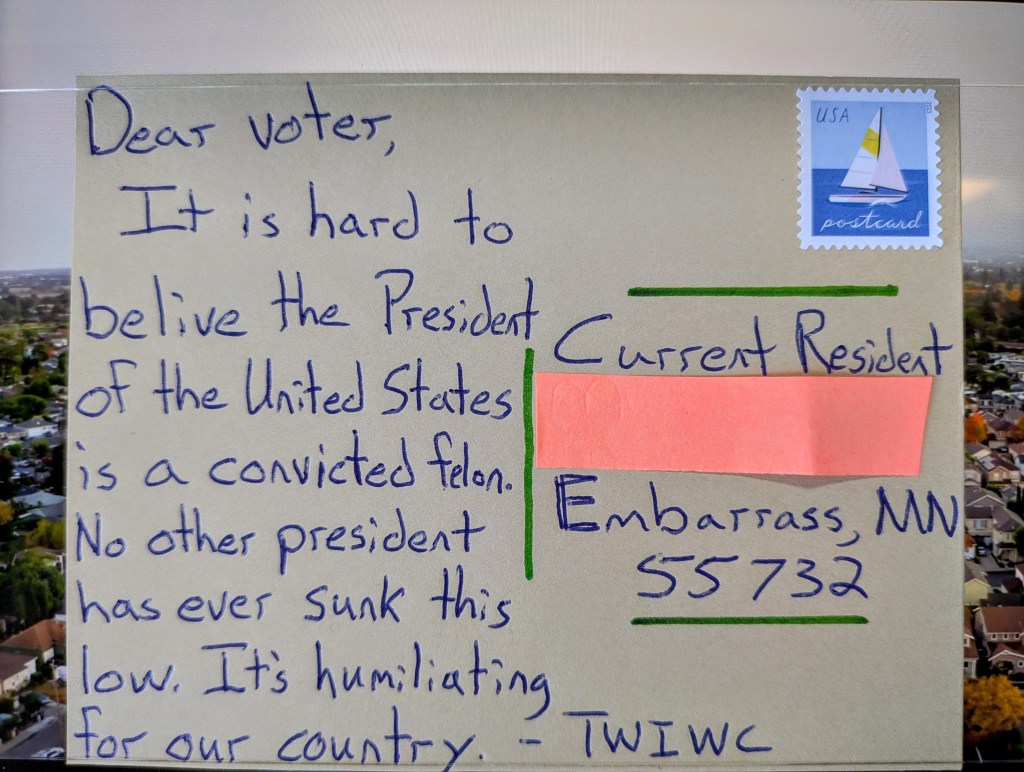 Dear voter,
It is hard to
belive the President
of the United States
is a convicted felon.
No other president
has ever sunk this
low. It's humiliating
for our country. - TWIWC
USA
postcard
Current Resident
Embarrass, MN
55732